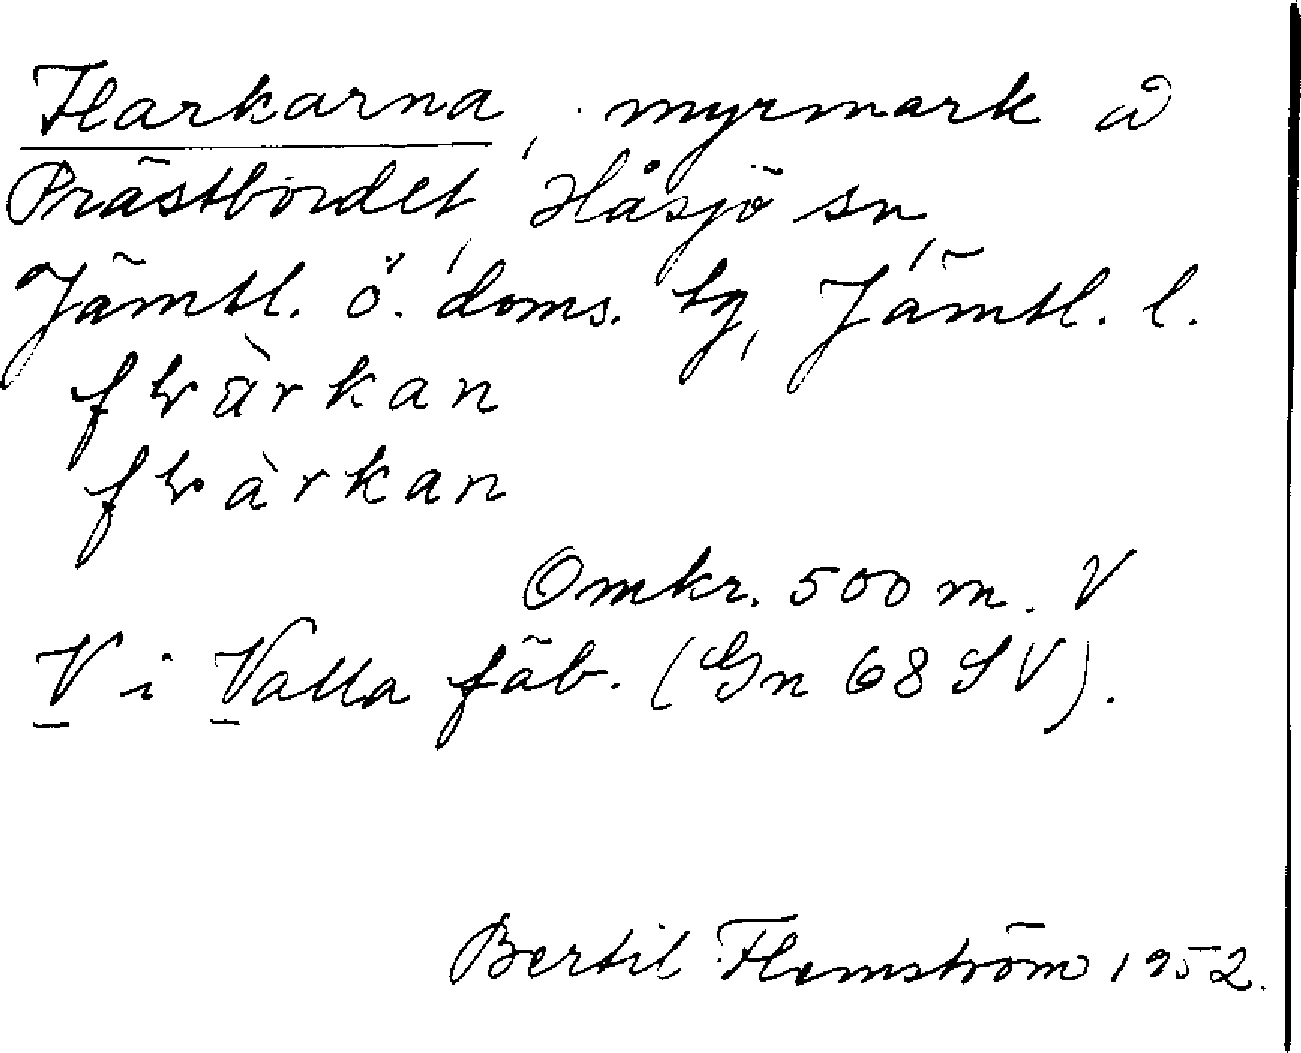 Flarkarna, myrmark å
Prästbordet, Håsjö sn,
Jämtl. ö. doms. tg, Jämtl. l.
àrkan
àrkan
Omkr. 500 m. V
V i Valla fäb. (Gn 68 SV).
Bertil Flemström 1952.